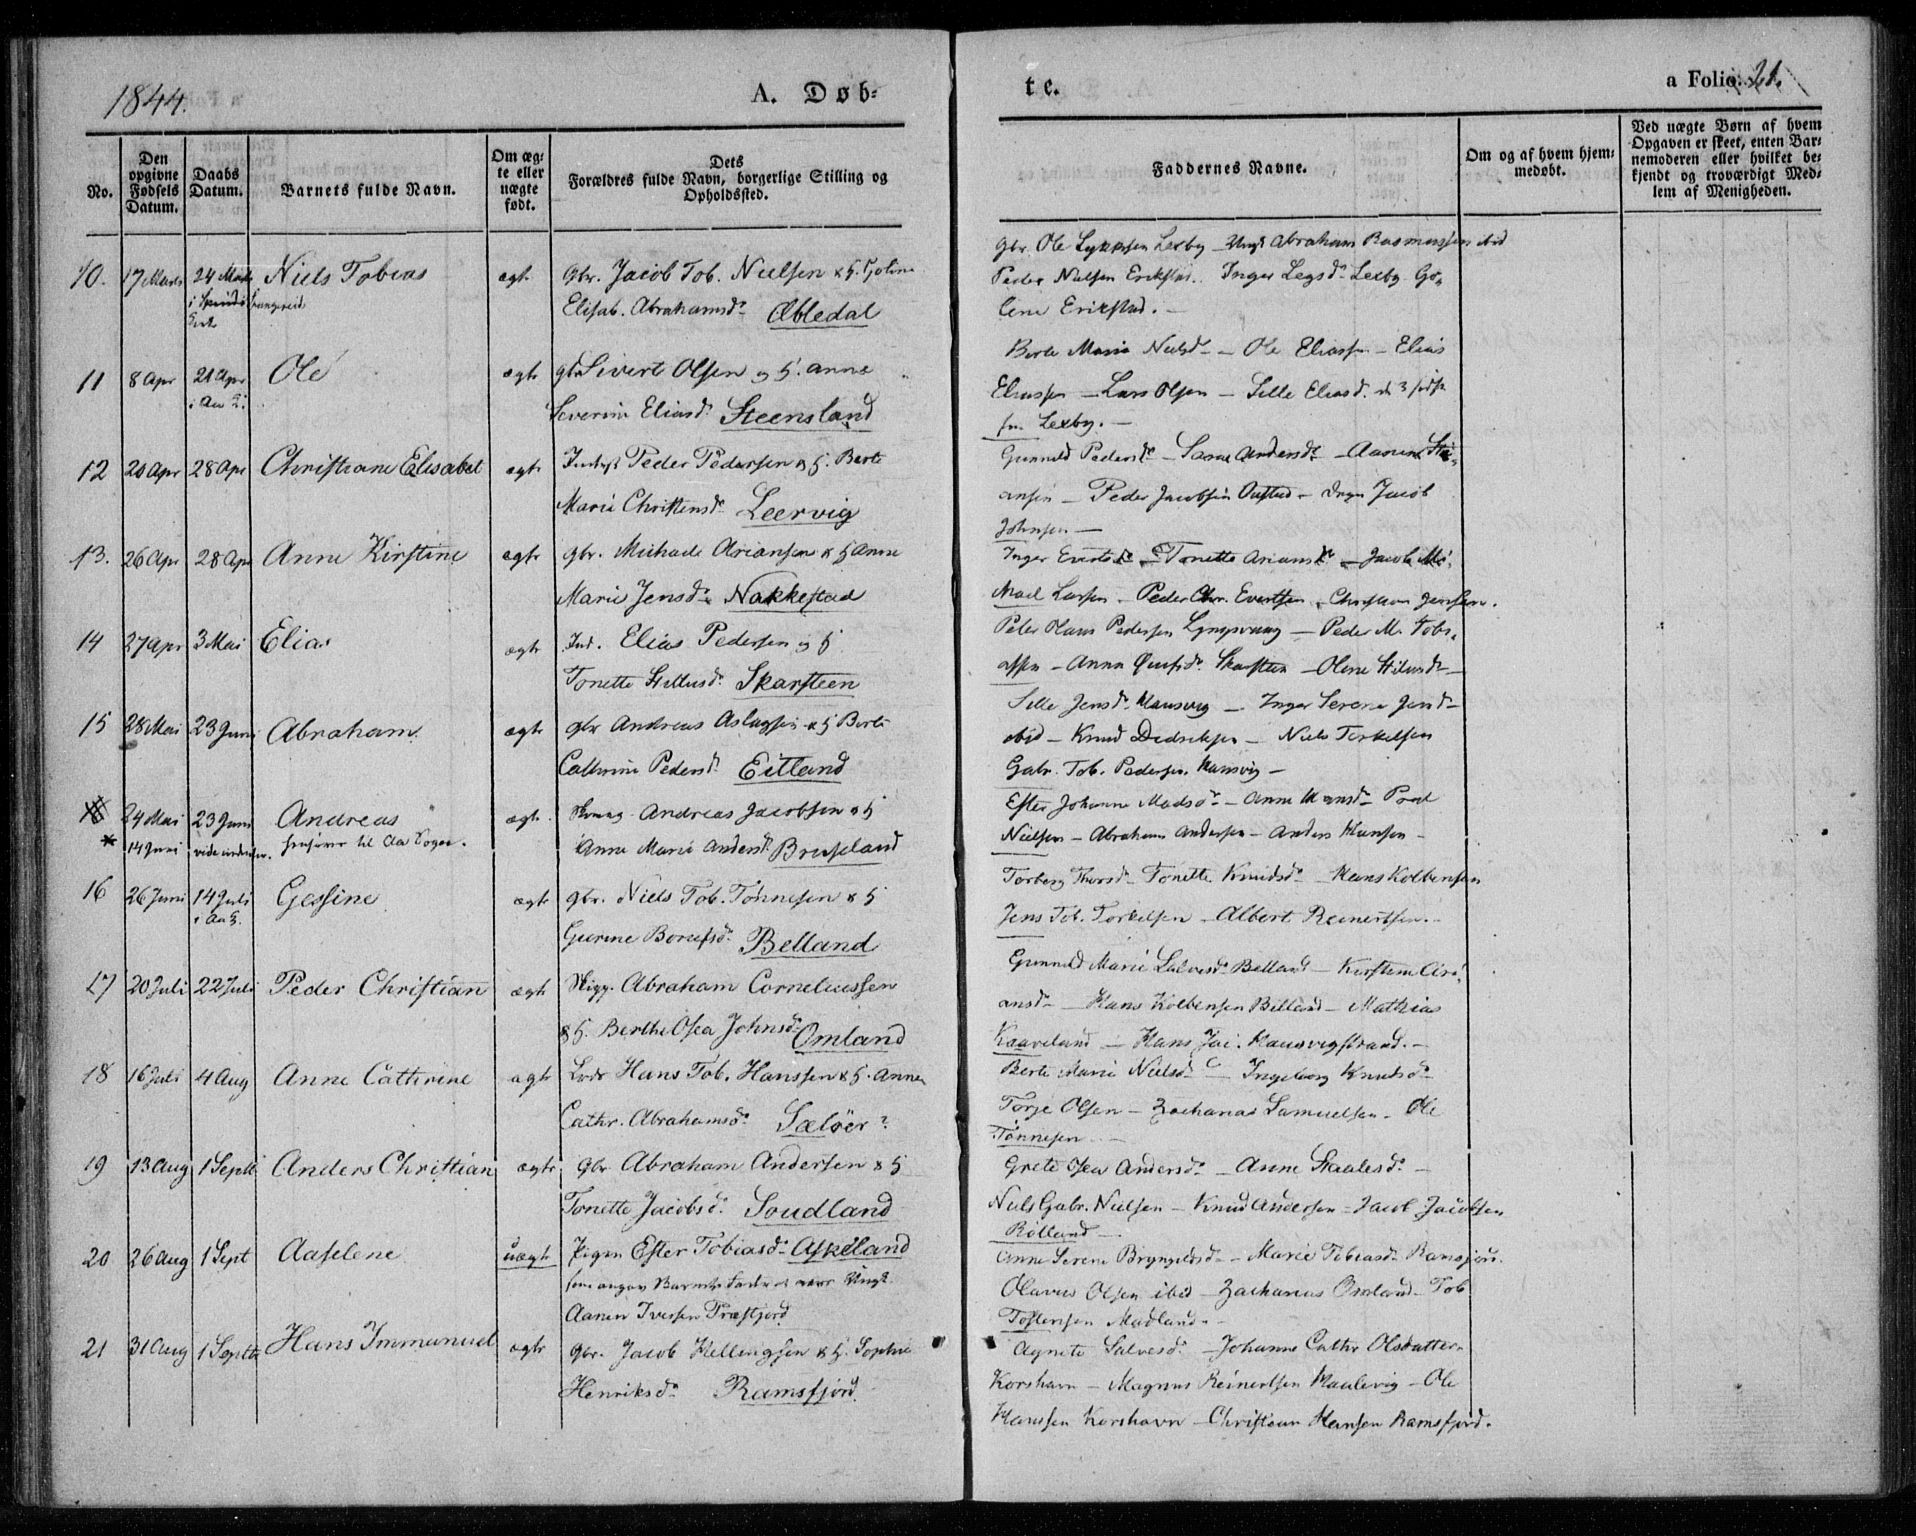 1844.
A. Døb-
te.
a Folio 21.
No.
Den opgivne Fødsels Datum.
Daabs Datum.
Barnets fulde Navn.
Om ægte eller uægte født.
Dets Forældres fulde Navn, borgerlige Stilling og Opholdssted.
Faddernes Navne.
Om og af hvem hjemmedøbt.
Ved uægte Børn af hvem Opgaven er skeet, enten Barnemoderen eller hvilket bekjendt og troværdigt Medlem af Menigheden.
10. 17 Marts 24 Marts Niels Tobias ægte Gbr. Jacob Tob. Nielsen & H. Goline
Elisab. Abrahamsd. Æbledal
Gbr. Ole Lexby Ungk Abraham Rasmussen ibid
Peder Nielsen Erikstad. Inger Lexby Go-
lene Erikstad.
11 8 Apr 21 Apr Ole ægte gbr Sivert Olsen og H. Anne
i Aa K.
Severine Eliasd. Steensland
Berte Marie Nielsd. – Ole Eliassen – Elias
Eliassen – Lars Olsen – Sille Eliasd. de 3 sidste
fra Lexby. –
12 20 Apr 28 Apr Christiane Elisabet ægte Inderst Peder Pedersen & H. Berte
Marie Christensd. Leervig
Gunnild Pedersd. – Sara Andersd. – Aanen
ansen – Peder Jacobsen – Jacob
Johnsen –
13. 26 Apr 28 Apr Anne Kirstine ægte gbr. Michael Ariansen & H Anne
Marie Jensd. Nakkestad
Inger – Tonette Ariansd. – Jacob Mi-
chael Larsen – Peder Chr. Evertsen – Christian Jensen.
14 27 Apr 3 Mai Elias ægte Ind. Elias Pedersen og H.
Tonette Skarsteen
Peter Hans Pedersen Lyngsvaag – Peder M. Tobi-
assen – Anne Skarsteen – Olene
15 28 Mai 23 Juni Abraham ægte gbr Andreas Aslagsen & H Berte
Cathrine Pedersd. Eitland
Sille Jensd. Hansvig – Inger Serene Jensd.
ibid – Knud Didriksen – Niels Torkelsen
Gabr. Tob. Pedersen. Hansvig –
24 Mai 23 Juni Andreas ægte. Andreas Jacobsen & H
* 14 Juni henhører til Aa Sogn.
Anne Marie Andersd. Bruseland
Ester Johanne Madsd. – Anne Hansd. Poul
Nielsen – Abraham Andersen – Anders Hansen –
16 26 Juni 14 Juli Gessine ægte gbr. Niels Tob. Tønnesen & H
i Aa K.
Gurine Belland
Torborg Thorsd. – Tonette Knudsd. – Hans Kolbensen
Jens Tob. Torkelsen – Albert Reinertsen.
17 20 Juli 22 Juli Peder Christian ægte Abraham Corneliussen
& H. Berthe Osea Johnsd. Omland
Gunnild Marie Salvesd. Belland – Kirstine Ari-
ansd. – Hans Kolbensen Belland – Mathias
Kaaveland – Hans Jac. Hausvigstrand. –
18 16 Juli 4 Aug Anne Cathrine ægte Lods Hans Tob. Hanssen & H. Anne
Cathr. Abrahamsd. Sælöer
Berte Marie Nielsd. – Ingeborg Knudsd.
Torje Olsen – Zacharias Samuelsen – Ole
Tønnesen –
19 13 Aug 1 Septb Anders Christian ægte Gbr. Abraham Andersen & H
Tonette Jacobsd. Soudland
Grete Osea Andersd. – Anne Staalesd. –
Niels Gabr. Nielsen – Knud Andersen – Jacob Jacobsen
Rölland –
20 26 Aug 1 Sept Aaselene uægte Pigen Ester Tobiasd. Askeland
som angav Barnets Fader at være Ungk.
Aanen Iversen Træfjord
Anne Serene – Marie Tobiasd. Ramsfjord.
Olavus Olsen ibid – Zacharias Omland – Tob
Tostensen Madland –
21 31 Aug 1 Septb Hans Immanuel ægte gbr. Jacob Kellingsen & H. Sophie
Henriksd. Ramsfjord
Agnete Salvesd. – Johanne Cathr Olsdatter
Korshavn – Magnus Reinertsen Maalevig – Ole
Hanssen Korshavn – Christian Hansen Ramsfjord.